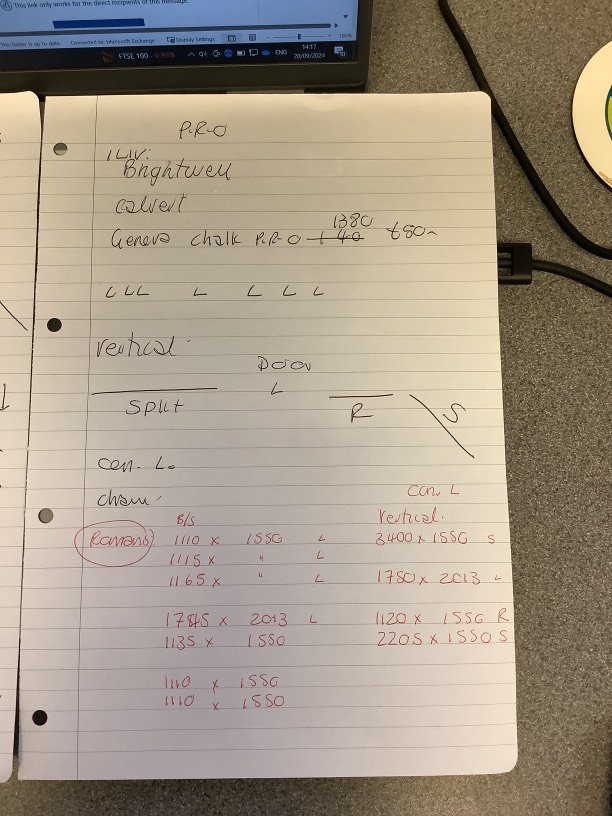 This link only works for the direct recipients of this message.
This folder is up to date. Connected to: Microsoft Exchange Display Settings 100%
FTSE 100 ENG 14:17
20/09/2024
P.R.O
Brightwell
Calvert
1380
Geneva chalk P.R.O
L L L L L L L
Vertical
Door
L
Split
R
S
Con. L.
Con. L
B/S
Vertical.
Romans 1110 x 1550 L 3400 x 1550 S
1115 x " L
1165 x " L 1780 x 2013 L
1785 x 2013 L 1120 x 1550 R
1135 x 1550 2205 x 1550 S
1110 x 1550
1110 x 1550